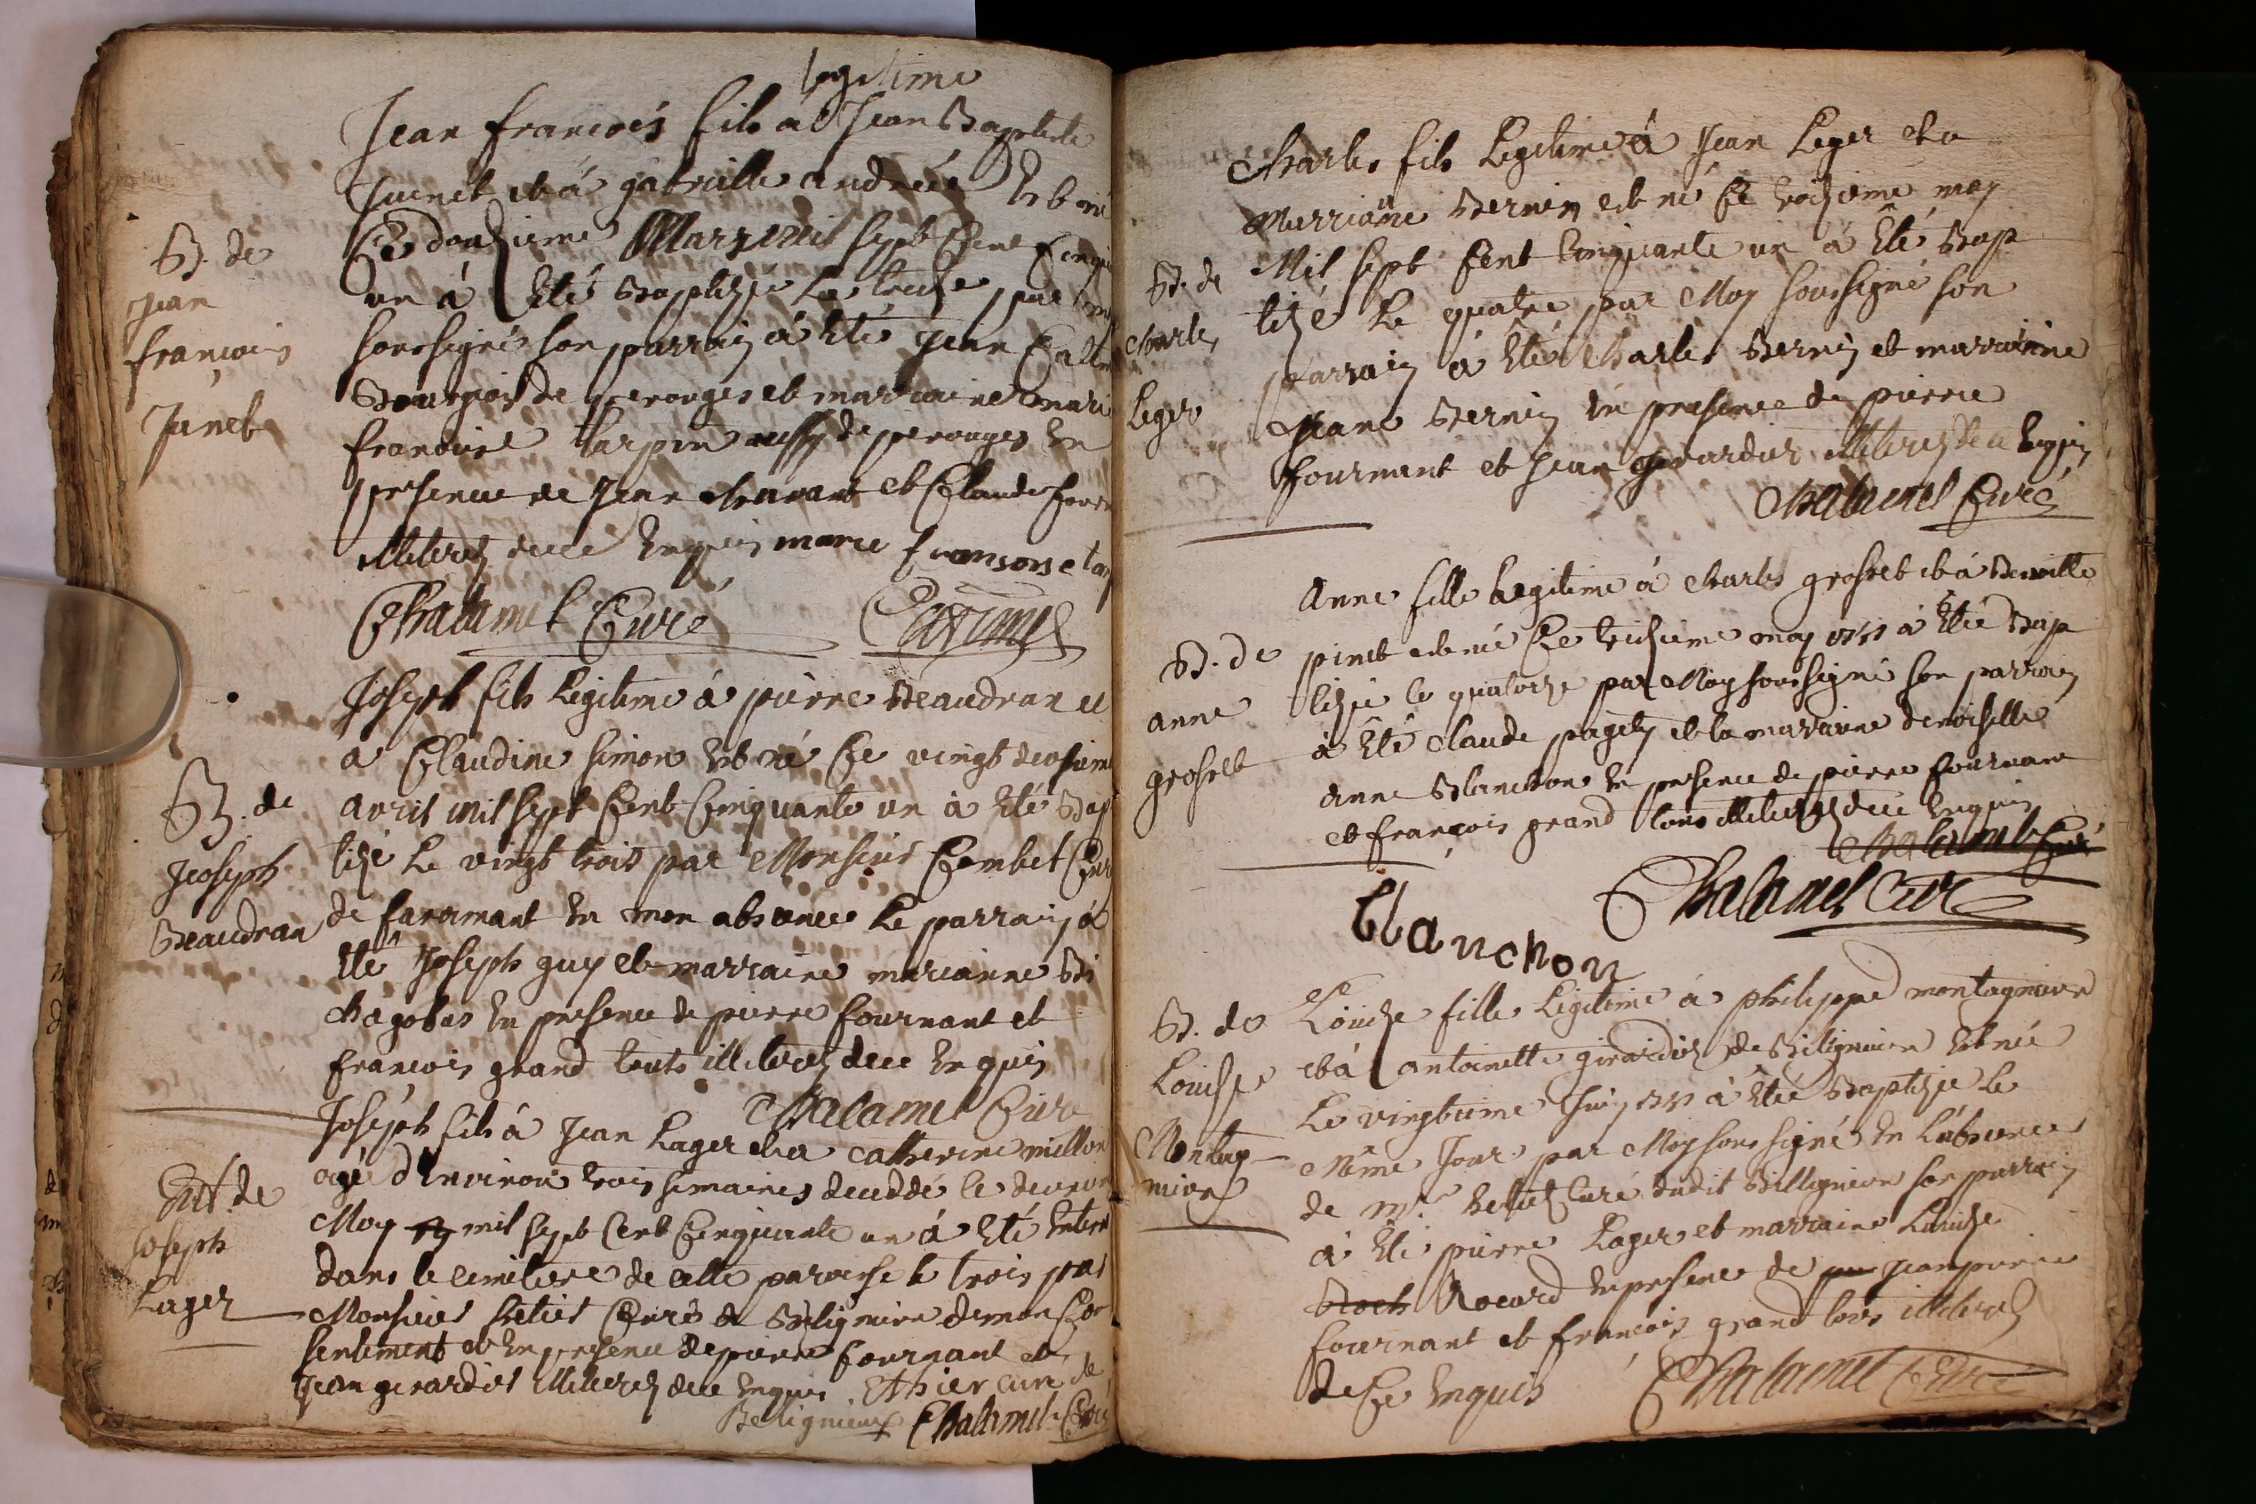 legitime
Jean francois fils à Jean Baptiste
Junet et à gabrielle andrée Est né
Ce douzieme Mars mil sept Cent Cinqu
un à Eté Baptizé Le treize par moy
soussigné son parrain à Eté Jean
Bourgois de perouges et marraine marie
francoise tarpin aussy de perouges En
presence de Jean Chavant et Claude
illiterez de ce Enquis marie fransoise tar
Chalamel Curé
B. de
Jean
francois
Junet
Joseph fils Legitime à pierre Beaudran et
a Claudine simon Est né Ce vingt deusieme
avril mil sept Cent Cinquante un à Eté Bap
tizé Le vingt trois par Monsieur Combet Curé
de faramant En mon absence Le parrain à
Eté Joseph guy et marraine marianne
En presence de pierre fournant et
francois grand touts illiterez de ce Enquis
Chalamel Curé
B. de
Joseph
Beaudran
Joseph fils à Jean Lager et a Catherine millon
agé d'Environ trois semaines decedé le
May mil sept Cent Cinquante un à Eté Enterré
dans le cimitiere de cette paroisse le trois par
Monsieur Curé de Bélignieux de mon Con
sentement et En presence de pierre fournant et
Jean girardier illiterez de ce Enquis curé de
Beligneux Chalamel Curé
Ent. de
Joseph
Lager
Charles fils Legitime à Jean Leger et a
Marrianne Bernin est né Ce troizieme may
Mil sept Cent Cinquante un à Eté Bap
tizé Le quatre par Moy soussigné son
parrain à Eté Charles Bernin et marrainne
Jeane Bernin En presence de pierre
fournant et Jean girardier illiterez de ce Enquis
Chalamel Curé
B. de
Charles
Leger
Anne fille Legitime à Charles grosset et à Benoitte
pinet est né Ce treizieme may 1751 à Eté Bap
tizée le quatorze par Moy soussigné son parrain
à Eté Claude et la marainne demoiselle
anne Blanchon En presence de pierre fournant
et françois grand tous illiterez de ce Enquis
Chalamel Curé
Chalamel Curé
blanchon
B. de
anne
grosset
Louise fille Légitime à philippe montagnieux
et à antoinette girardier de Béligneux Est née
Le vingtieme Juin 1751 à Eté Baptizée Le
Même Jour par Moy soussigné En L'absence
de Mr. Curé dudit Billignieux son parrain
à Eté pierre Lager et marraine Louise
Rocard En presence de Jean pierre
fournant et francois grand tous illiterez
de Ce Enquis Chalamel Curé
B. de
Louise
Montag
nieux